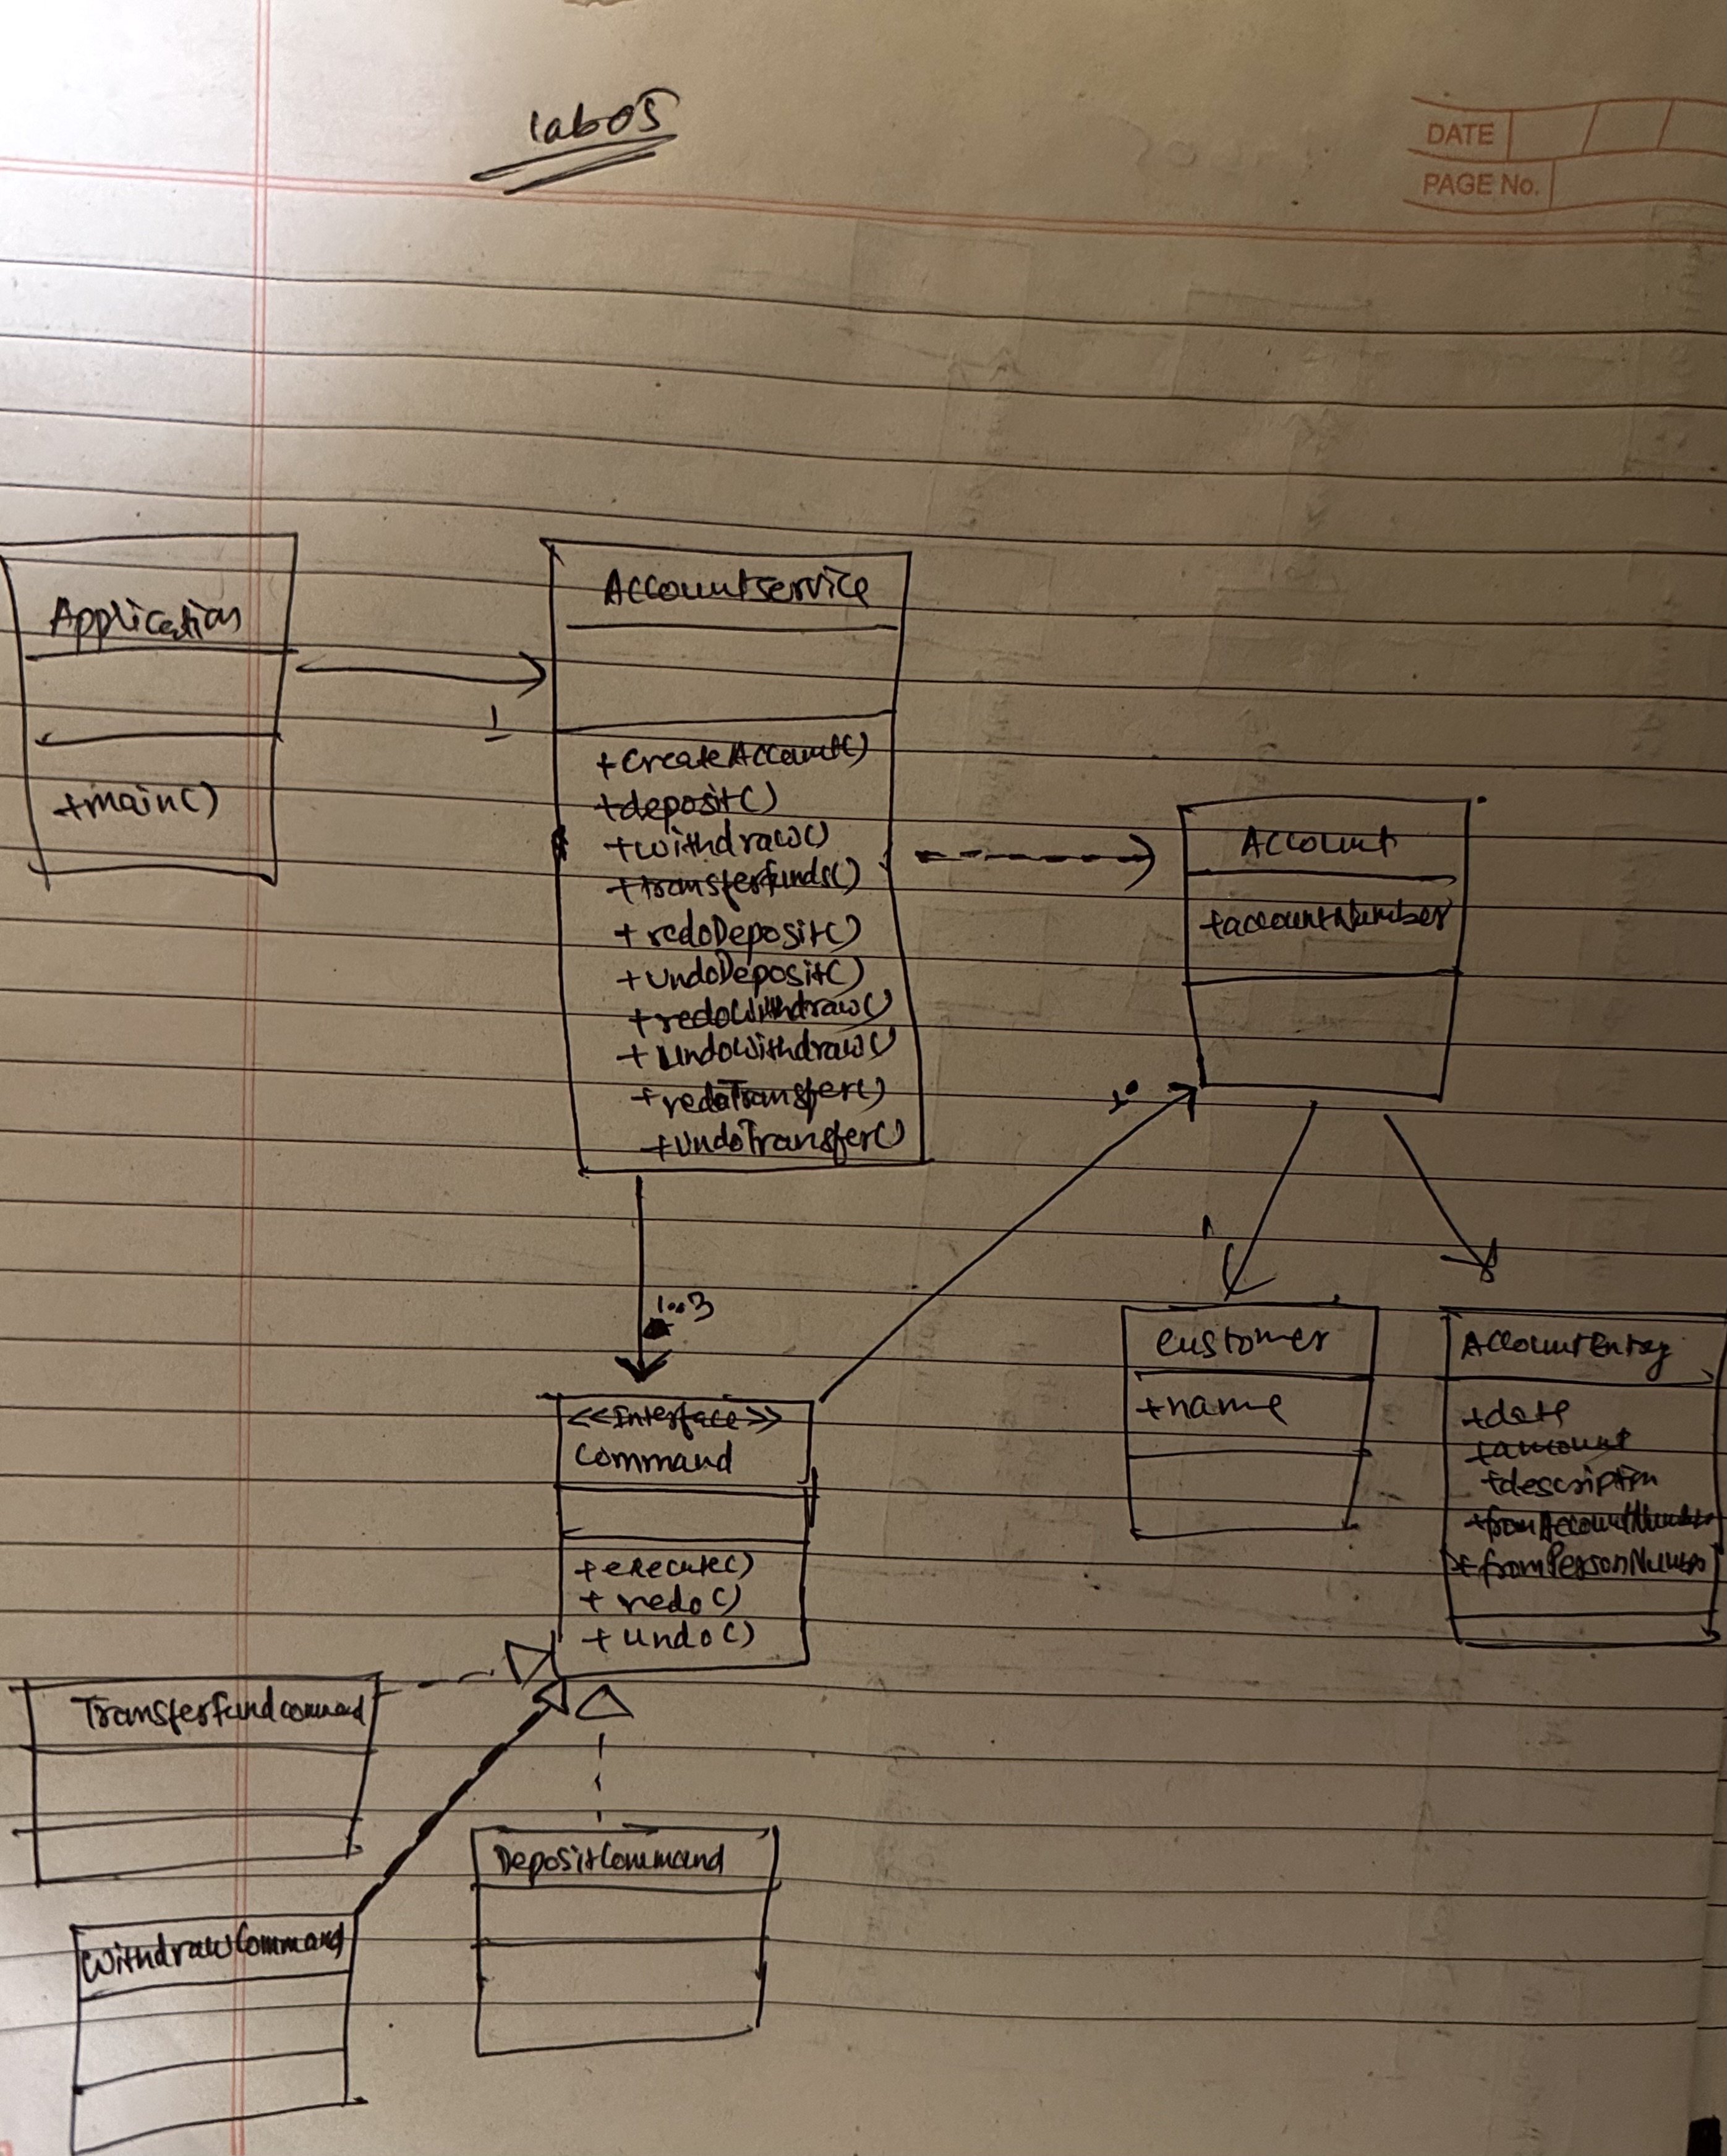 lab05
DATE
PAGE No.
Application
+main()
Accountservice
+CreateAccount()
+deposit()
+withdraw()
+transferfunds()
+redoDeposit()
+undoDeposit()
+redoWithdraw()
+undoWithdraw()
+redoTransfer()
+undoTransfer()
1
Account
+accountNumber
1
1..3
<<Interface>>
Command
+execute()
+redo()
+undo()
customer
+name
AccountEntry
+date
+amount
+description
+fromAccountNumber
+fromPersonNumber
Transferfundcommand
DepositCommand
WithdrawCommand